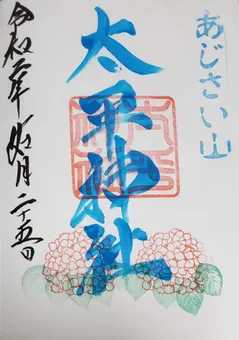 あじさい山
太平神社
令和年月二十五日